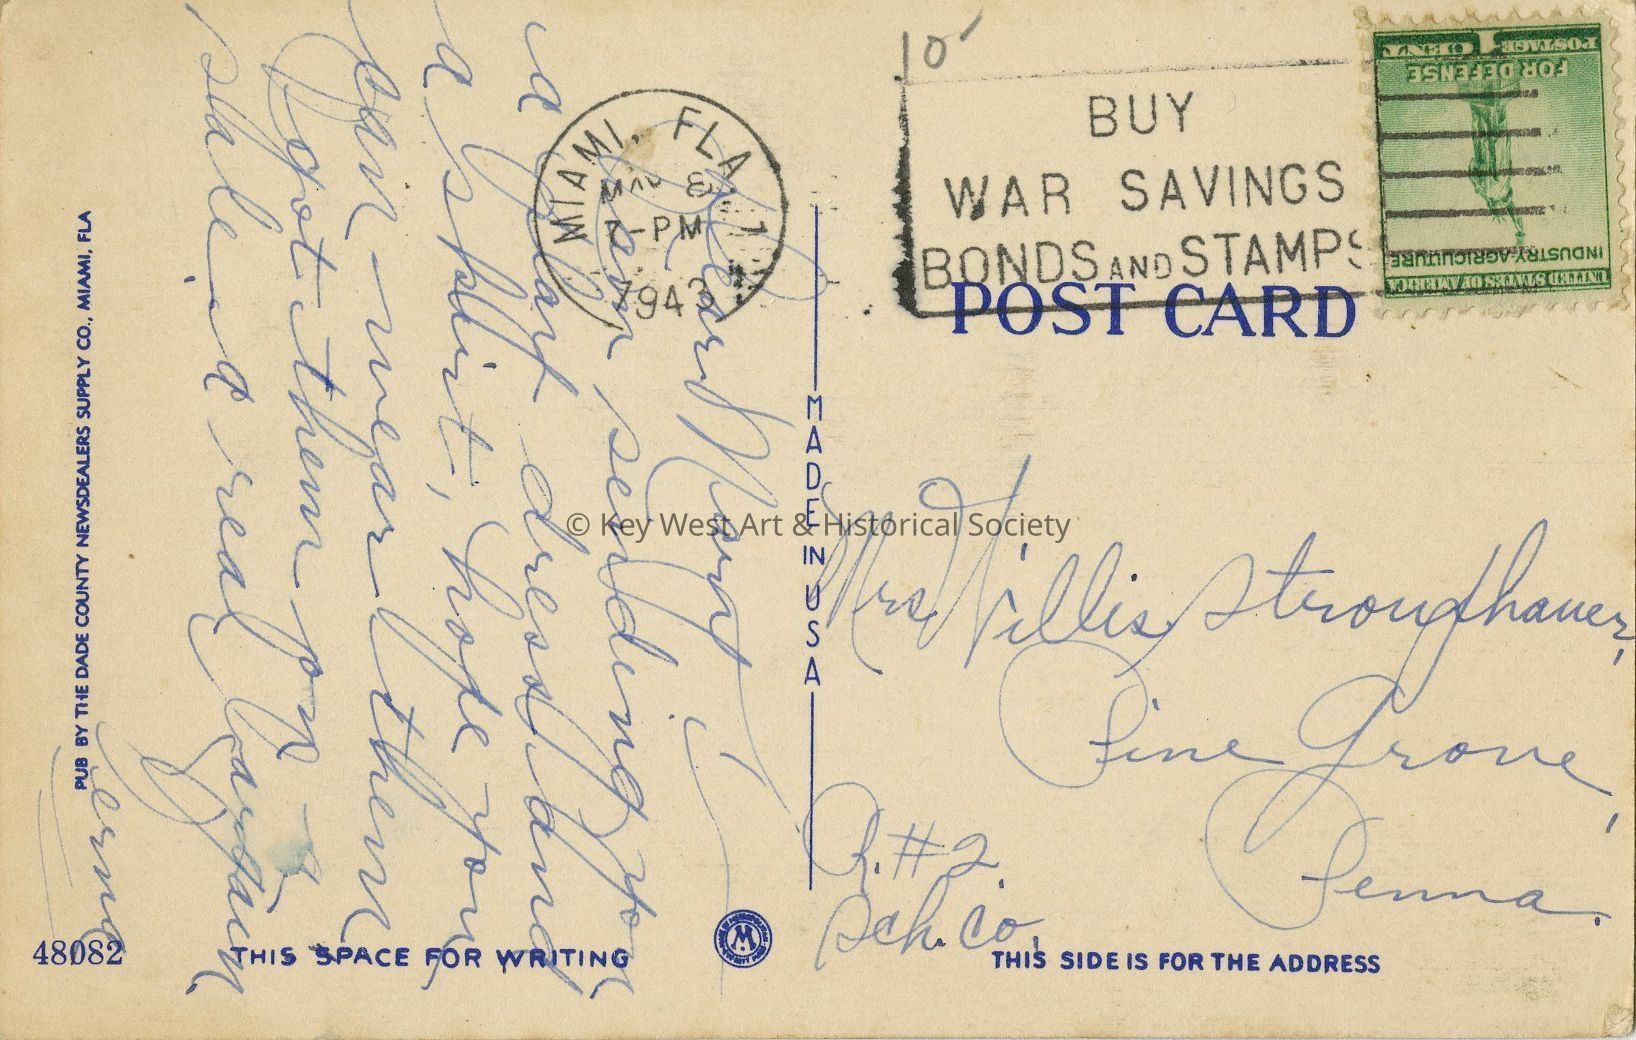 10
MIAMI, FLA
MAR 8
7-PM
1943
1
BUY
WAR SAVINGS
BONDS AND STAMPS
1 CENT POSTAGE
FOR DEFENSE
INDUSTRY-AGRICULTURE
UNITED STATES OF AMERICA
POST CARD
Dear Mary,
Am sending you
a part dress and
a skirt, hope you
can wear them
Got them on
sale - a real bargain.
Verna
MADE IN USA
© Key West Art & Historical Society
Mrs. Willis Stroughauer,
Pine Grove,
Penna.
R. #2.
Sch. Co.
PUB BY THE DADE COUNTY NEWSDEALERS SUPPLY CO., MIAMI, FLA
48082
THIS SPACE FOR WRITING
THIS SIDE IS FOR THE ADDRESS